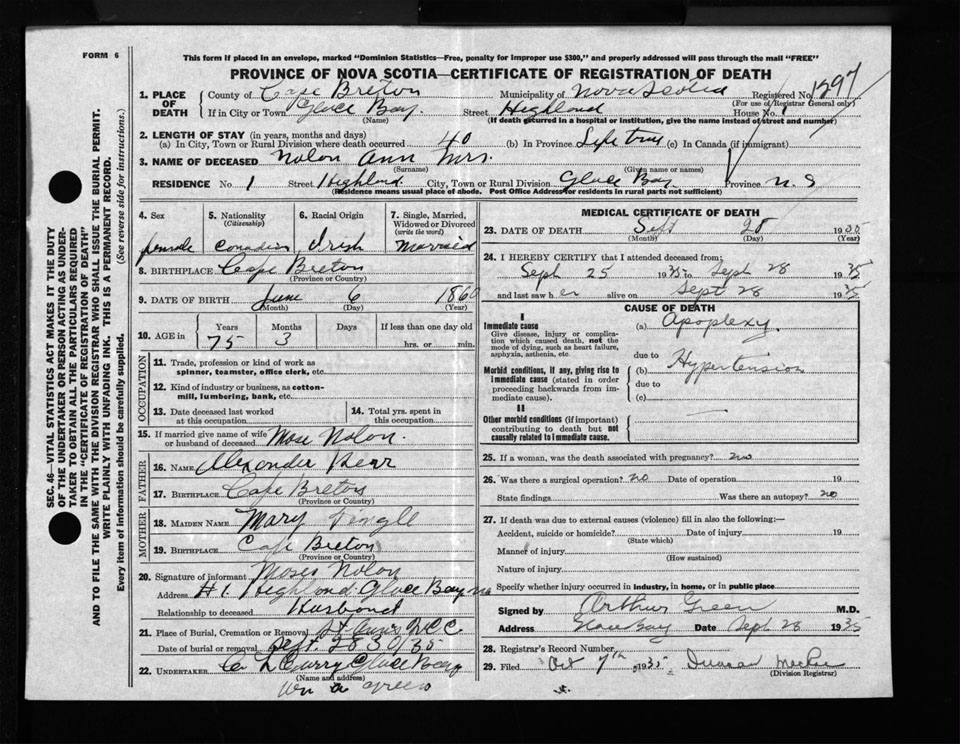 FORM 6
This form if placed in an envelope, marked "Dominion Statistics—Free, penalty for improper use $300," and properly addressed will pass through the mail "FREE"
PROVINCE OF NOVA SCOTIA—CERTIFICATE OF REGISTRATION OF DEATH
1. PLACE OF DEATH County of Cape Breton Municipality of Nova Scotia Registered No. 1297
(For use of Registrar General only)
If in City or Town Glace Bay. Street Highland House No. 1
(Name) (If death occurred in a hospital or institution, give the name instead of street and number)
2. LENGTH OF STAY (in years, months and days)
(a) In City, Town or Rural Division where death occurred 40 (b) In Province Life time (c) In Canada (if immigrant)
3. NAME OF DECEASED Nolon Ann Mrs.
(Surname) (Given name or names)
RESIDENCE No. 1 Street Highland. City, Town or Rural Division Glace Bay. Province N. S
(Residence means usual place of abode. Post Office Address for residents in rural parts not sufficient)
4. Sex female
5. Nationality (Citizenship) Conadian
6. Racial Origin Irish
7. Single, Married, Widowed or Divorced (write the word) Married
8. BIRTHPLACE Cape Breton
(Province or Country)
9. DATE OF BIRTH June 6 1860
(Month) (Day) (Year)
10. AGE in Years 75 Months 3 Days If less than one day old hrs. or min.
OCCUPATION
11. Trade, profession or kind of work as spinner, teamster, office clerk, etc.
12. Kind of industry or business, as cotton-mill, lumbering, bank, etc.
13. Date deceased last worked at this occupation
14. Total yrs. spent in this occupation
15. If married give name of wife or husband of deceased Mose Nolon.
FATHER
16. NAME Alexonder
17. BIRTHPLACE Cape Breton
(Province or Country)
MOTHER
18. MAIDEN NAME Mary Tingle
19. BIRTHPLACE Cape Breton
(Province or Country)
20. Signature of informant Moses Nolon
Address #1. Highland Glace Bay NS
Relationship to deceased Husbond
21. Place of Burial, Cremation or Removal
Date of burial or removal Sept. 30/35
22. UNDERTAKER Curry Glace Bay
(Name and address)
MEDICAL CERTIFICATE OF DEATH
23. DATE OF DEATH Sept 28 1930
(Month) (Day) (Year)
24. I HEREBY CERTIFY that I attended deceased from:
Sept 25 1935 to Sept 28 1935
and last saw her alive on Sept 28 1935
CAUSE OF DEATH
I
Immediate cause
Give disease, injury or complication which caused death, not the mode of dying, such as heart failure, asphyxia, asthenia, etc.
(a) Apoplexy.
due to
Morbid conditions, if any, giving rise to immediate cause (stated in order proceeding backwards from immediate cause).
(b) Hypertension
due to
(c)
II
Other morbid conditions (if important) contributing to death but not causally related to immediate cause.
25. If a woman, was the death associated with pregnancy? no
26. Was there a surgical operation? no Date of operation 19
State findings Was there an autopsy? no
27. If death was due to external causes (violence) fill in also the following:—
Accident, suicide or homicide? Date of injury 19
(State which)
Manner of injury
(How sustained)
Nature of injury
Specify whether injury occurred in industry, in home, or in public place
Signed by Arthur Green M.D.
Address Glace Bay Date Sept 28 1935
28. Registrar's Record Number
29. Filed Oct 7th 1935 Duncan
(Division Registrar)
SEC. 46—VITAL STATISTICS ACT MAKES IT THE DUTY
OF THE UNDERTAKER OR PERSON ACTING AS UNDER-
TAKER TO OBTAIN ALL THE PARTICULARS REQUIRED
IN THE "CERTIFICATE OF REGISTRATION OF DEATH"
AND TO FILE THE SAME WITH THE DIVISION REGISTRAR WHO SHALL ISSUE THE BURIAL PERMIT.
WRITE PLAINLY WITH UNFADING INK. THIS IS A PERMANENT RECORD.
Every item of information should be carefully supplied. (See reverse side for instructions.)